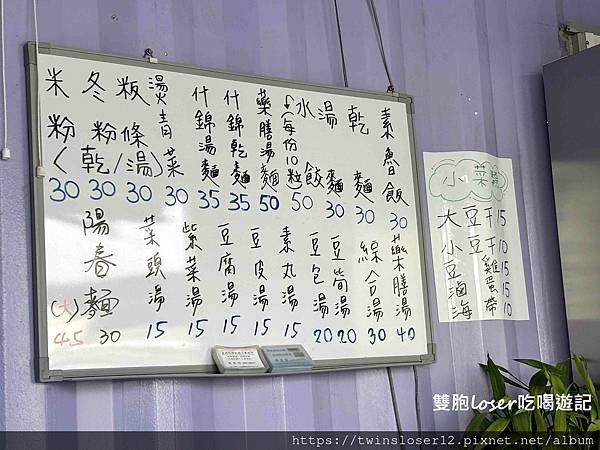 素魯飯 30
乾麵 30
湯麵 30
水餃(每份10粒) 50
藥膳湯麵 50
什錦乾麵 35
什錦湯麵 35
燙青菜 30
粄條 30
冬粉 30
米粉 30
(乾/湯)
藥膳湯 40
綜合湯 30
豆筍湯 20
豆包湯 20
素丸湯 15
豆皮湯 15
豆腐湯 15
紫菜湯 15
菜頭湯 15
陽春麵 30
(大) 45
小菜
大豆干15
小豆干10
豆雞15
滷蛋15
海帶10
雙胞loser吃喝遊記
https://twinsloser12.pixnet.net/album